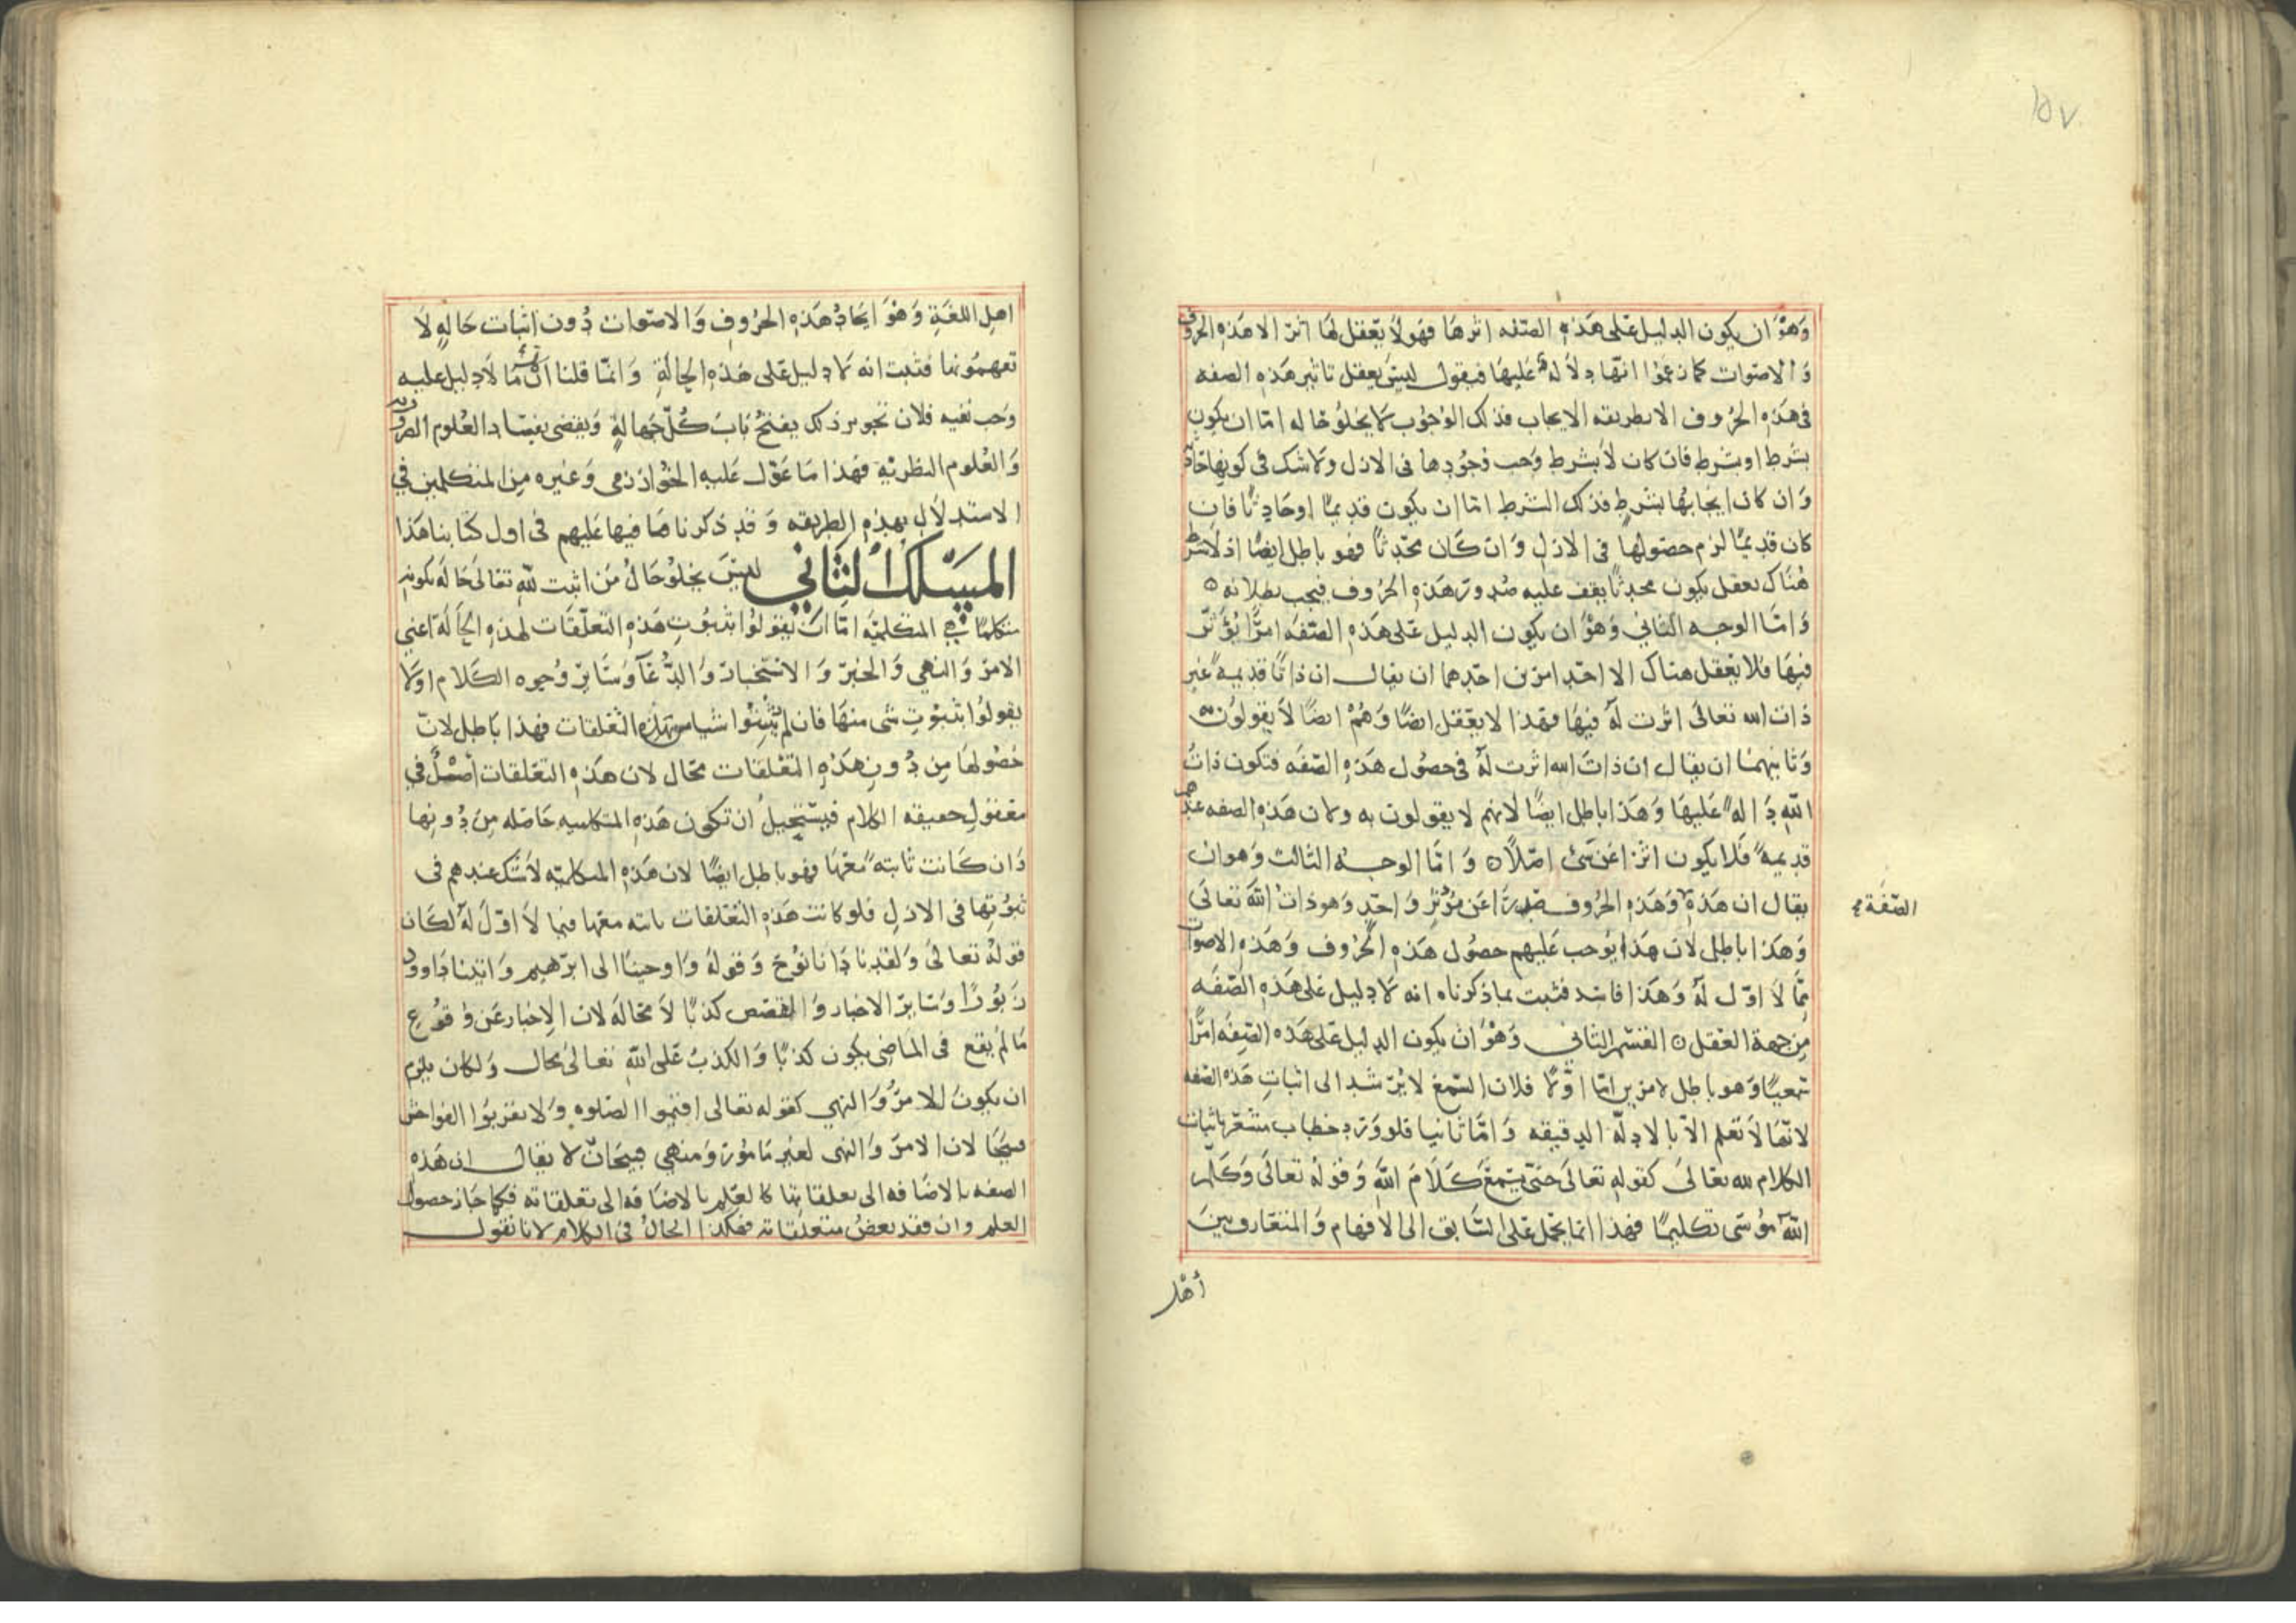 ١٥٧
وَهُوَ ان يكون الدليل على هذه الصفه اثرها فهو لا يعقل لها اثر الا هذه الحروف
وَالاصوات كما زعموا انها دلالة عليها فيقول ليس يعقل تاثير هذه الصفه
فى هذه الحُروف الا بطريقه الايجاب فذلك الوجوب لا يخلو حاله اما ان يكون
بشرط او بشرط فان كان لا بشرط وَجب وُجُودها فى الازل ولا شك فى كونها حادثة
وَان كان ايجابها بشرط فذلك الشرط اما ان يكون قديمًا اوحَادثًا فان
كان قديمًا لزم حصولها فى الازل وَان كَان محدثًا فهو باطل ايضًا اذ لا شرط
هُنَاك يعقل يكون محدثًا يقف عليه صُدورُ هَذه الحُروف فيجب بطلانه ٥
وَامّا الوجه الثاني وَهُوَ ان يكون الدليل عَلى هَذه الصّفَه امرًا يُؤثّر
فيها فلا يعقل هناك الا احَد امرين احَدهما ان يقال ان ذاتًا قديمةً غير
ذات الله تعالى اثرت لهُ فيها فهذا لا يعقل ايضًا وَهُمْ ايضًا لاَ يقولون به
وَثانيهما ان يقال ان ذاتَ الله اثرت لهُ فى حصُول هَذه الصّفَه فتكون ذاتُ
اللهِ دَالهً عَليهَا وَهَذا باطل ايضًا لانهم لا يقولون به ولان هَذه الصفه عندهم
قديمهً فَلا يكون اثرًا عَن شئ اصْلاً ٥ وَامّا الوجه الثالث وَهوان
يقال ان هَذة وَهَذه الحُروف صَدرَا عَن مؤثرٍ وَاحدٍ وَهو ذاتُ الله تعالَى
الصّفَة
وَهَذا باطل لان هَذا يوجب عَليهم حصُول هَذه الحُروف وَهَذه الاصوات
ممّا لا اوّل لهُ وَهَذا فاسد فثبت بماذكرناه انه لا دليل عَلى هَذه الصّفَه
مِن جهة العَقل ٥ القسم الثاني وَهُوَ ان يكون الدليل على هَذه الصِفَه امرًا
سَمعيًّا وَهو باطل لامرين امّا اوّلا فلان السَّمعَ لا يُرشد الى اثبات هَذه الصفه
لانّها لا تعلم الاّ بالادلّة الدقيقه وَامّا ثانيا فلو وَرَد خطاب مشعر باثبات
الكلام لله تعالىَ كقوله تعالىَ حَتى يَسْمَعَ كَلاَمَ اللهَ وَقوله تعالَى وَكَلم
اللهُ مُوسَى تكليمًا فهذا انما يحمل عَلى السَّابق الى الافهام وَالمتعَارف بين
أهْل
اهلِ اللغَةِ وَهُوَ ايجادُ هَذه الحرُوف وَالاصوات دُون اثبات حَالهٍ لا
تفهمُونها فثبت انه لا دليل عَلى هَذه الحالَةِ وَانّما قلنا انّ مَا لا دليل عليه
وَجب نفيه فلان تجويز ذلك يفتحُ بَابَ كُلّ جَهالهٍ وَيفضى بفسَاد العُلوم الضروريه
وَالعُلوم النظريّه فهَذا مَا عَوّل عَليه الخوَارزمى وَغيره مِن المتكلمين فى
الاستدلاَل بهَذه الطريقه وَقد ذكرنا مَا فيها عَليهم فى اول كتابنا هَذا
المَسْلك الثاني ليسَ يخلو حَالُ مَن اثبت للهِ تعالىَ حَالهً بكونه
متكلمًا فى المتكلميّه امّا ان يقولوا بثبُوتِ هَذه التعلّقات لهذه الحَالَة اعني
الامر وَالنهي وَالخبر وَالاستخبار وَالدُّعَآ وَسَايرِ وُجوه الكَلام اولا
يقولُوا بثبُوتِ شى منهَا فان لم يُثبِتُوا شيا من هذه التعلقات فهذا باَطل لانّ
حُصُولهَا مِن دُونِ هَذه التعلقات محَال لان هَذه التعَلقات اصْلٌ فى
معَقول حقيقه الكلام فيستحيلُ ان تكون هَذه المتكلميه حَاصله مِن دُونها
وَان كَانت ثابتهً مَعَهَا فهو باطل ايضًا لان هَذه المتكلميّه لاَ شَك عندهم فى
ثبُوتها فى الازلِ فلو كانت هَذه التعَلقات ثابته معَها فيما لاَ اوّلَ لهُ لكَان
قولهُ تعالىَ وَلقَد نادَانا نوُحَ وَقولهُ وَاوحينَا الى ابرهيم وَاتينا دَاوود
زَبُورًا وَسَاير الاخبار وَالقصَص كذبًا لاَ محَاله لان الاخبار عَن وُقوُعِ
مَالم يقع فى الماضى يكون كذبًا وَالكذبُ عَلى اللهِ تعَالىَ محال وَلكان يلزم
ان يكونَ الامرُ وَالنهى كقوله تعالى اقيمُوا الصّلوه وَلا تقربُوا الفواحش
قبيحًا لان الامرَ وَالنهى لغير مَامُور وَمنهي قبيحَان لا يقال ان هَذه
الصفه بالاضَافه الى تعلقاتها كالعلم بالاضَافه الى تعلقاته فكما جَاز حصول
العلم وان فقد بعضُ متعلقاته فهكذا الحالُ فى الكلام لانا نقول